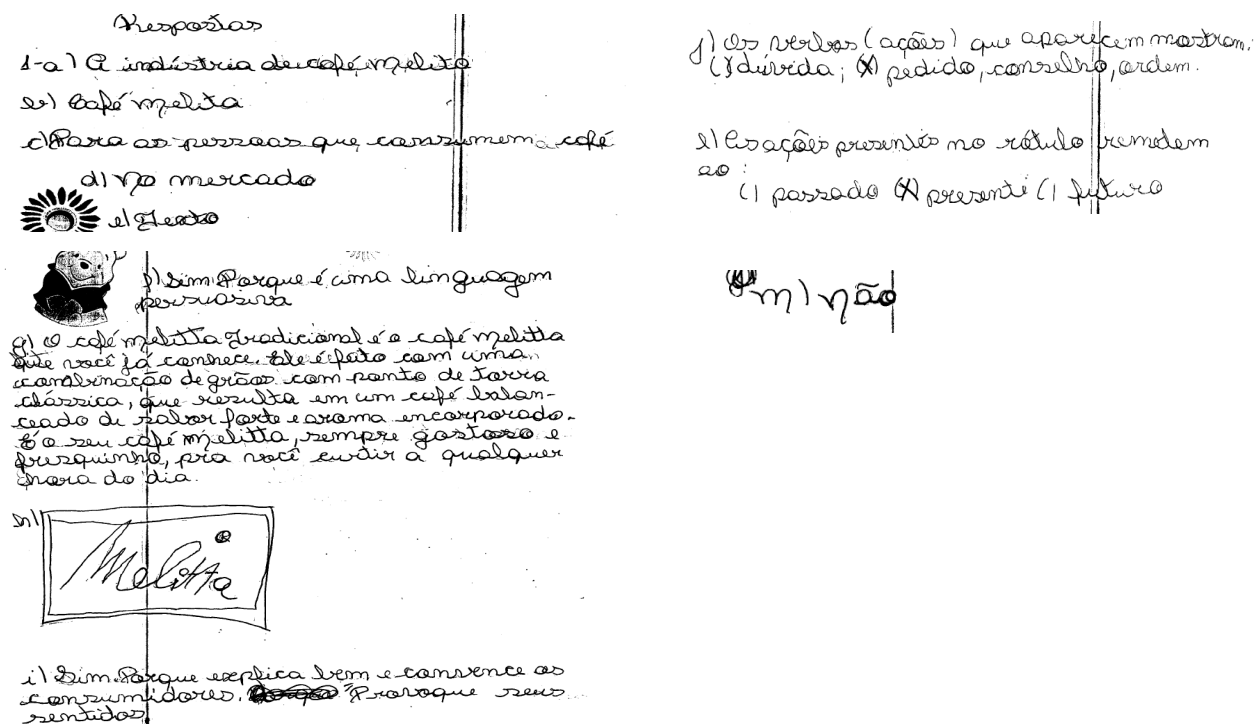 Respostas
1-a) A indústria de café melita
b) Café melita
c) Para as pessoas que consumem café
d) No mercado
e) Texto
f) Sim. Porque é uma linguagem
persuasiva
g) O café melitta Tradicional é o café melitta
que você já conhece. Ele é feito com uma
combinação de grãos com ponto de torra
clássica, que resulta em um café balan-
ceado de sabor forte e aroma encorporado.
É o seu café melitta, sempre gostoso e
fresquinho, pra você curtir a qualquer
hora do dia.
h)
Melitta
i) Sim. Porque explica bem e convence os
consumidores. "Provoque seus
sentidos
j) Os verbos (ações) que aparecem mostram:
( ) dúvida; (X) pedido, conselho, ordem.
l) As ações presentes no rótulo remetem
ao:
( ) passado (X) presente ( ) futuro
m) não